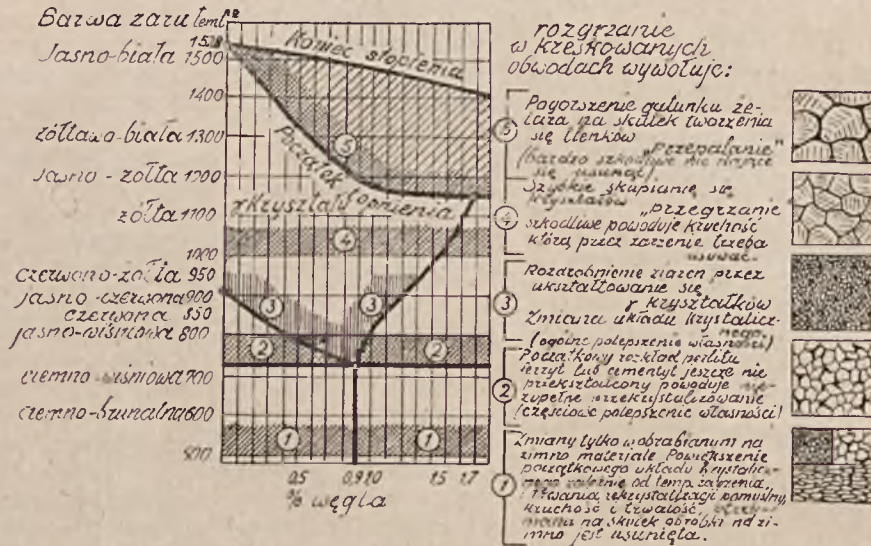 Barwa żaru temp.
1528
Jasno-biała 1500
1400
żółtawo-biała 1300
Jasno-żółta 1200
żółta 1100
1000
czerwono-żółta 950
jasno-czerwona 900
czerwona 850
jasno-wiśniowa 800
ciemno-wiśniowa 700
ciemno-brunatna 600
500
Koniec stopienia
Początek stopnienia
γ Kryształ
5
4
3 3
2 2
1 1
0.5 0.9 1.0 1.5 1.7
% węgla
rozgrzanie
w kreskowanych
obwodach wywołuje:
5
Pogorszenie gatunku że-
laza na skutek tworzenia
się tlenków
„przepalanie"
(bardzo szkodliwe nie dające
się usunąć).
4
Szybkie skupianie się
kryształów
„przegrzanie
szkodliwe powoduje kruchość
którą przez żarzenie trzeba
usuwać.
3
Rozdrobnienie ziaren przez
ukształtowanie się
γ kryształków
Zmiana układu krystalicz-
nego
(ogólne polepszenie własności)
2
Początkowy rozkład perlitu
ferryt lub cementyt jeszcze nie
przekształcony powoduje nie-
zupełne przekrystalizowanie
(częściowe polepszenie własności)
1
Zmiany tylko w obrabianym na
zimno materiale Powiększenie
początkowego układu krystalicz-
nego zależnie od temp. żarzenia,
i trwania rekrystalizacji
kruchość i trwałość,
na skutek obróbki na zi-
mno jest usunięta.